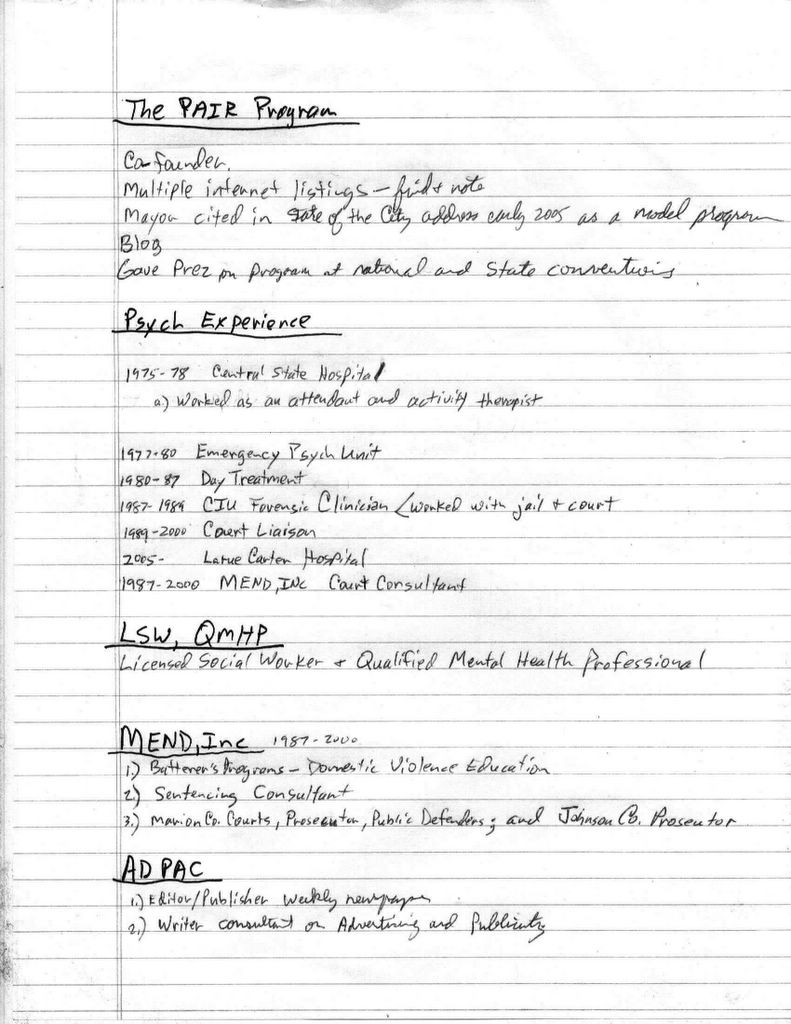 The PAIR Program
Co-founder.
Multiple internet listings - find + note
Mayor cited in State of the City address early 2005 as a model program
Blog
Gave Prez on program at national and State conventions
Psych Experience
1975-78 Central State Hospital
a.) Worked as an attendant and activity therapist
1977-80 Emergency Psych Unit
1980-87 Day Treatment
1987-1989 CIU Forensic Clinician (worked with jail + court
1989-2000 Court Liaison
2005- Larue Carter Hospital
1987-2000 MEND, INC Court Consultant
LSW, QMHP
Licensed Social Worker + Qualified Mental Health Professional
MEND, Inc 1987-2000
1.) Batterer's Programs - Domestic Violence Education
2.) Sentencing Consultant
3.) Marion Co. Courts, Prosecutor, Public Defenders; and Johnson Co. Prosecutor
AD PAC
1.) Editor/Publisher weekly newspaper
2.) Writer consultant on Advertising and Publicity